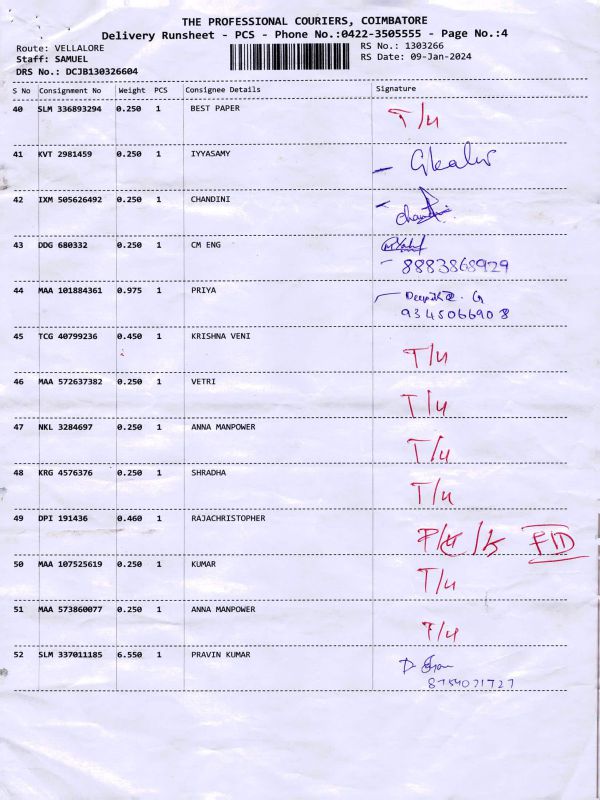 THE PROFESSIONAL COURIERS, COIMBATORE
Delivery Runsheet - PCS - Phone No.:0422-3505555 - Page No.:4
Route: VELLALORE RS No.: 1303266
Staff: SAMUEL RS Date: 09-Jan-2024
DRS No.: DCJB130326604
S No Consignment No Weight PCS Consignee Details Signature
40 SLM 336893294 0.250 1 BEST PAPER T/4
41 KVT 2981459 0.250 1 IYYASAMY
42 IXM 505626492 0.250 1 CHANDINI
43 DDG 680332 0.250 1 CM ENG
8883868929
44 MAA 101884361 0.975 1 PRIYA
9345066908
45 TCG 40799236 0.450 1 KRISHNA VENI T/4
46 MAA 572637382 0.250 1 VETRI T/4
47 NKL 3284697 0.250 1 ANNA MANPOWER T/4
48 KRG 4576376 0.250 1 SHRADHA T/4
49 DPI 191436 0.460 1 RAJACHRISTOPHER
50 MAA 107525619 0.250 1 KUMAR T/4
51 MAA 573860077 0.250 1 ANNA MANPOWER T/4
52 SLM 337011185 6.550 1 PRAVIN KUMAR